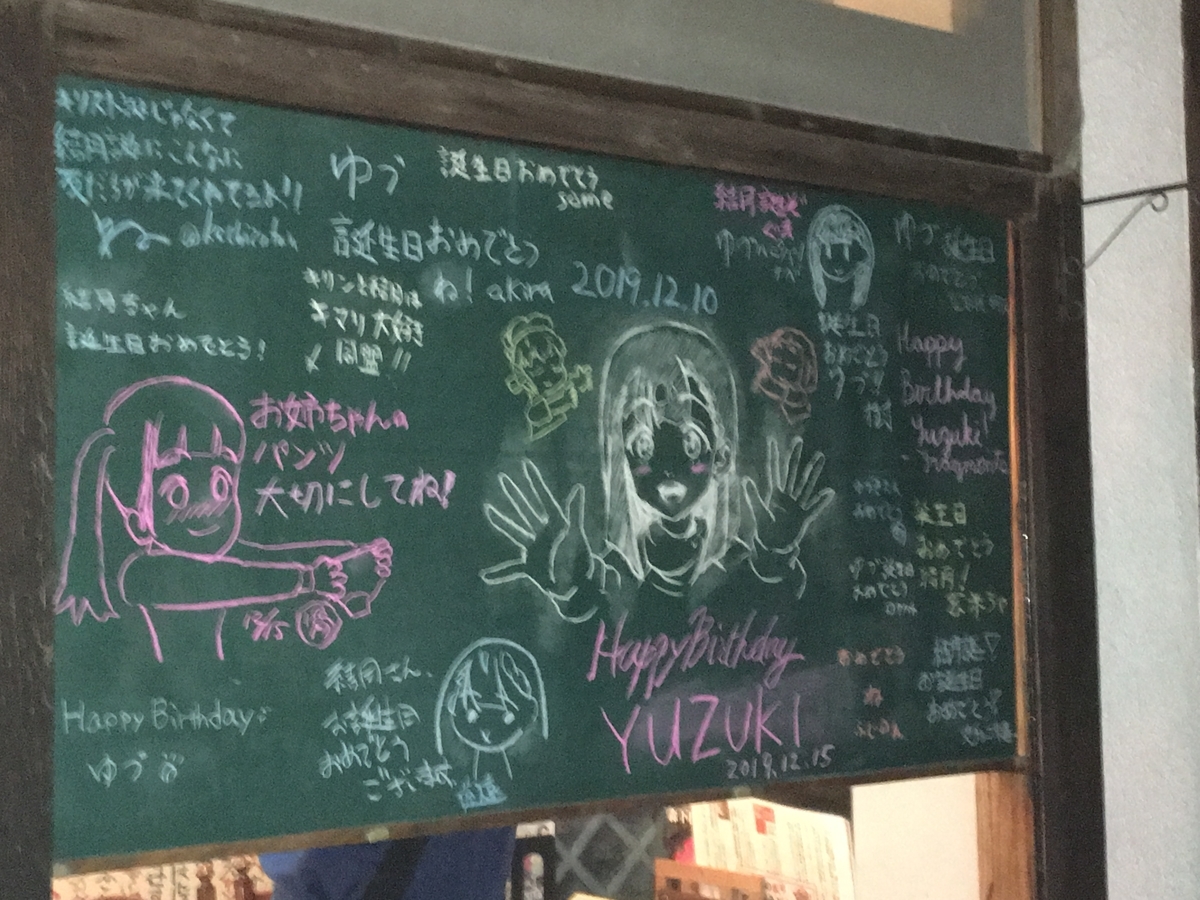 キリスト誕じゃなくて
結月誕にこんなに
友だちが来てくれてるよ!!
ゆづ
誕生日おめでとう
some
誕生日おめでとう
ね! akira
2019.12.10
結月ちゃん
誕生日おめでとう!
キリンと結月は
キマリ大好き
同盟!!
お姉ちゃんの
パンツ
大切にしてね!
12/15
Happy Birthday
ゆづ
結月さん、
お誕生日
おめでとう
ございます
Happy Birthday
YUZUKI
2019.12.15
ゆづ 誕生日
おめでとう
誕生日
おめでとう
Happy
Birthday
Yuzuki!
おめでとう
誕生日
おめでとう
結月!
ゆづ誕生日
おめでとう
おめでとう
お誕生日
おめでとう